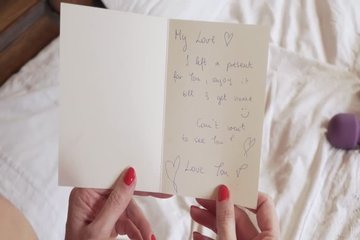 My Love ♡
I left a present
for you, enjoy it
till I get home
:)
Can't wait
to see You!
Love You